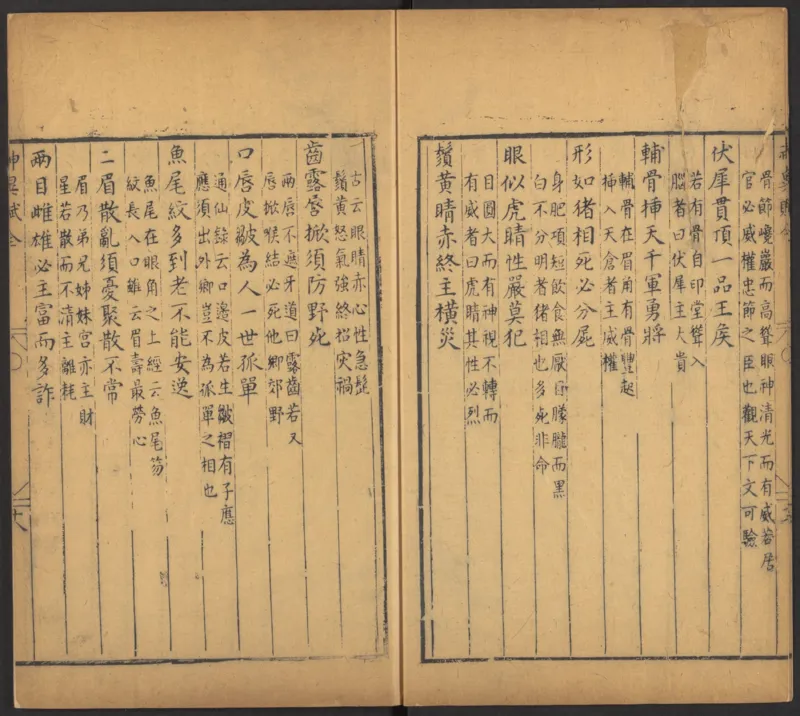 骨節嶢巖而高聳眼神清光而有威若居
官必威權忠節之臣也觀天下文可驗
伏犀貫頂一品王矦
若有骨自印堂聳入
腦者曰伏犀主大貴
輔骨揷天千軍勇將
輔骨在眉角有骨豐起
揷入天倉者主威權
形如猪相死必分屍
身肥項短飲食無厭目朦朧而黑
白不分明者猪相也多死非命
眼似虎睛性嚴莫犯
目圓大而有神視不轉而
有威者曰虎睛其性必烈
鬚黄睛赤終主橫災
古云眼睛赤心性急髭
鬚黄怒氣強終招灾禍
齒露唇掀須防野死
兩唇不遮牙道曰露齒若又
唇掀喉結必死他鄉郊野
口唇皮皺為人一世孤單
通仙錄云口邊皮若生皺褶有子應
應須出外鄉豈不為孤單之相也
魚尾紋多到老不能安逸
魚尾在眼角之上經云魚尾笏
紋長入口雖云眉壽最勞心
二眉散亂須憂聚散不常
眉乃弟兄姊妹宮亦主財
星若散而不清主離耗
兩目雌雄必主富而多詐
神異賦全